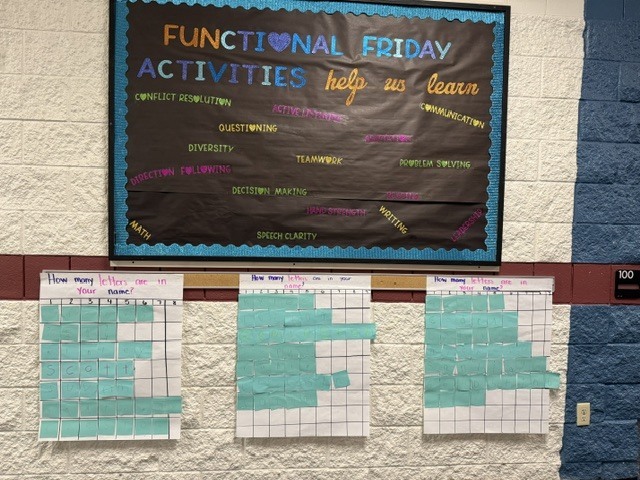 FUNCTIONAL FRIDAY
ACTIVITIES help us learn
CONFLICT RESOLUTION
ACTIVE LISTENING
COMMUNICATION
QUESTIONING
DIVERSITY
TEAMWORK
PROBLEM SOLVING
DIRECTION FOLLOWING
DECISION MAKING
MATH
WRITING
SPEECH CLARITY
100
How many letters are in
your name?
1 2 3 4 5 6 7 8
How many letters are in your
name?
How many letters are in
your name?